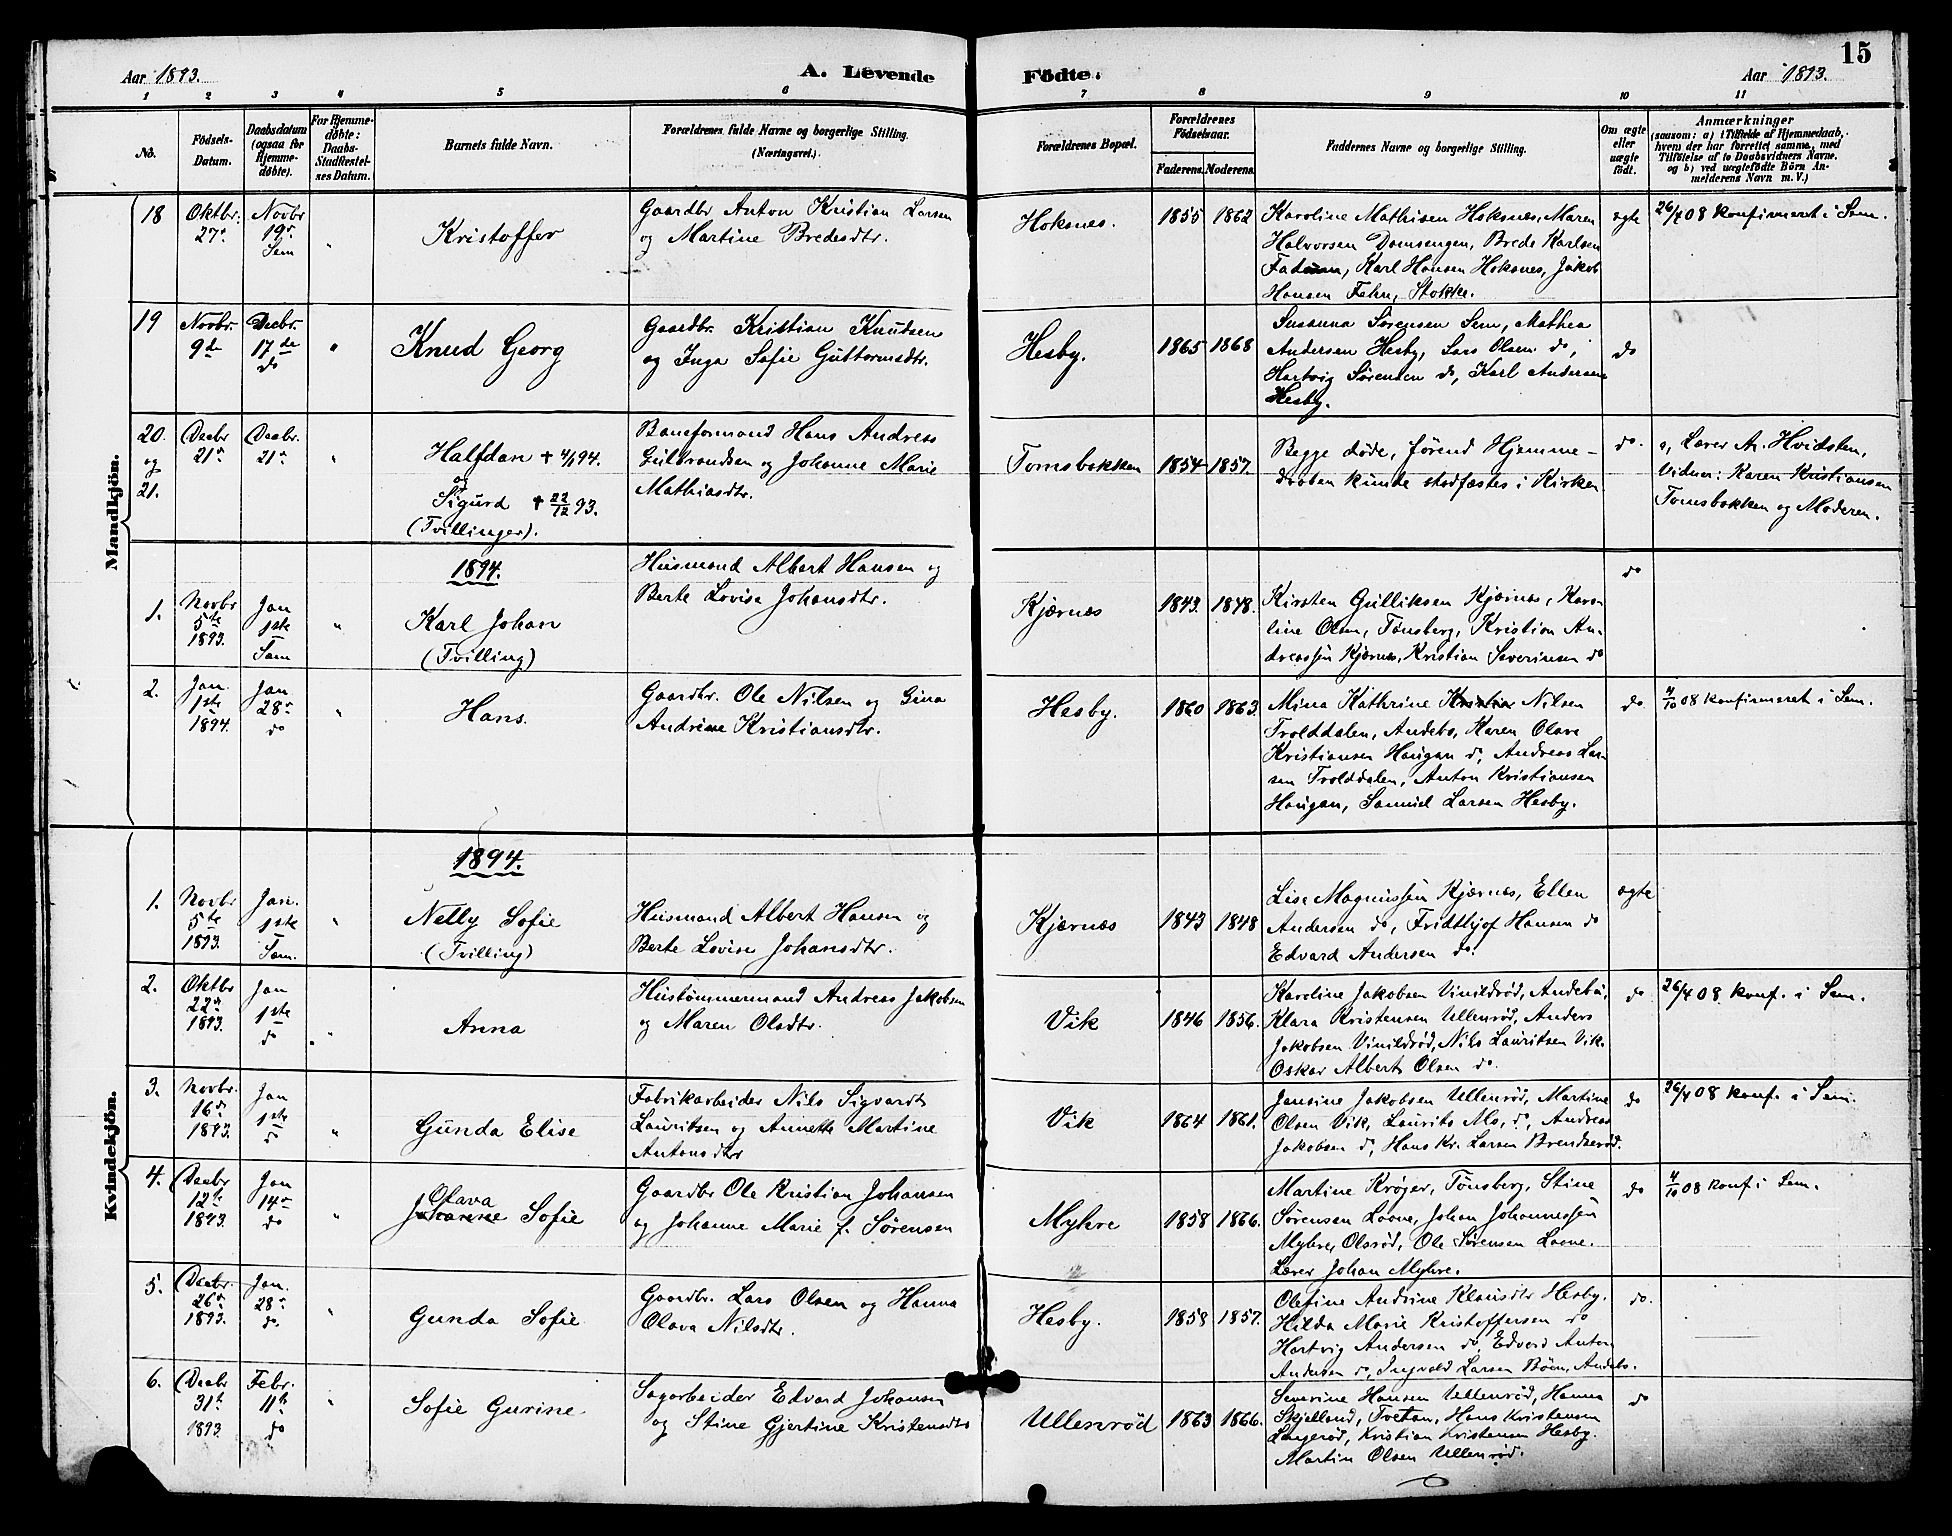 15
Aar 1893.
A. Levende
Födte.
Aar 1893.
1 2 3 4 5 6 7 8 9 10 11
No.
Födsels-
Datum.
Daabsdatum
(ogsaa for
Hjemme-
døbte).
For Hjemme-
døbte:
Daabs-
Stadfæstel-
ses Datum.
Barnets fulde Navn.
Forældrenes fulde Navne og borgerlige Stilling.
(Næringsvei.)
Forældrenes Bopæl.
Forældrenes
Fødselsaar.
Faderens. Moderens.
Faddernes Navne og borgerlige Stilling.
Om ægte
eller
uægte
født.
Anmærkninger
(saasom: a) i Tilfælde af Hjemmedaab,
hvem der har forrettet samme, med
Tilføielse af to Daabsvidners Navne,
og b) ved uægtefødte Börn An-
melderens Navn m. V.)
Mandkjön.
18
Oktbr.
27de
Novbr
19de
Sem
"
Kristoffer
Gaardbr Anton Kristian Larsen
og Martine Bredesdtr.
Hoksnes.
1855 1862
Karoline Mathisen Hoksnes, Maren
Halvorsen Domsengen, Brede Karlsen
Fadum, Karl Hansen Hoksnes, Jakob
Hansen Fehn, Stokke.
ægte
26/4 08 konfirmeret i Sem.
19
Novbr.
9de
Decbr.
17de
do
"
Knud Georg
Gaardbr. Kristian Knudsen
og Inga Sofie Guttormsdtr.
Hesby.
1865 1868
Susanna Sørensen Sem, Mathea
Andersen Hesby, Lars Olsen do,
Hartvig Sørensen do, Karl Andersen
Hesby.
do
20.
og
21.
Decbr
21de
Decbr.
21de
"
Halfdan + 4/1 94.
og
Sigurd + 22/12 93.
(Tvillinger).
Baneformand Hans Andreas
Gulbrandsen og Johanne Marie
Mathiasdtr.
Tomsbakken
1854 1857.
Begge døde, førend Hjemme-
daaben kunde stadfæstes i Kirken
do.
a, Lærer A. Hvidsten,
Vidner: Karen Kristiansen
Tomsbakken og Moderen.
1894.
1.
Novbr
5te
1893.
Jan
1ste
Sem
"
Karl Johan
(Tvilling)
Husmand Albert Hansen og
Berte Lovise Johansdtr.
Kjærnes
1843. 1848.
Kirsten Gulliksen Kjærnes, Karo-
line Olsen, Tønsberg, Kristian An-
dreassen Kjærnes, Kristian Severinsen do
do
2.
Jan.
1ste
1894.
Jan.
28de
do
"
Hans.
Gaardbr. Ole Nilsen og Gina
Andrine Kristiansdtr.
Hesby.
1860 1863.
Mina Kathrine Nilsen
Trolddalen, Andebo, Karen Olava
Kristiansen Haugan do, Andreas Lar-
sen Trolddalen, Anton Kristiansen
Haugan, Samuel Larsen Hesby.
do.
4/10 08 konfirmeret i Sem.
Kvindekjön.
1894.
1.
Novbr
5te
1893.
Jan.
1ste
Sem.
"
Nelly Sofie
(Tvilling)
Husmand Albert Hansen og
Berte Lovise Johansdtr.
Kjærnes
1843 1848
Lise Magnussen Kjærnes, Ellen
Andersen do, Fridthjof Hansen do
Edvard Andersen do.
ægte
2.
Oktbr
22de
1893.
Jan
1ste
do
"
Anna
Hustømmermand Andreas Jakobsen
og Maren Olsdtr.
Vik
1846 1856.
Karoline Jakobsen Vinildrød, Andebu,
Klara Kristensen Ullenrød, Anders
Jakobsen Vinildrød, Nils Lauritsen Vik.
Oskar Albert Olsen do.
do.
26/4 08. konf. i Sem.
3.
Novbr.
16de
1893.
Jan
1ste
do
"
Gunda Elise
Fabrikarbeider Nils Sigvardt
Lauritsen og Annette Martine
Antonsdtr
Vik
1864 1861.
Jensine Jakobsen Ullenrød, Martine
Olsen Vik, Laurits Ms, do, Andreas
Jakobsen do, Hans Kr. Larsen Brendserød.
do
26/4 08 konf. i Sem.
4.
Decbr
12te
1893.
Jan
14de
do
"
Olava
Johanne Sofie
Gaardbr Ole Kristian Johansen
og Johanne Marie f. Sørensen
Myhre
1858 1866.
Martine Krøger, Tønsberg, Stine
Sørensen Loone, Johan Johannessen
Myhre, Olsrød, Ole Sørensen Loone.
Lærer Johan Myhre.
do
4/10 08 konf i Sem.
5.
Decbr.
26de
1893.
Jan.
28de
do.
"
Gunda Sofie
Gaardbr. Lars Olsen og Hanna
Olava Nilsdtr.
Hesby.
1858 1857.
Olefine Andrine Klausdtr Hesby.
Hilda Marie Kristoffersen do
Hartvig Andersen do, Edvard Anton
Andersen do, Ingvald Larsen Bøen, Andebo.
do.
6.
Decbr
31te
1893.
Febr.
11te
do
"
Sofie Gurine.
Sagarbeider Edvard Johansen
og Stine Gjertine Kristensdtr
Ullenrød
1863 1866.
Severine Hansen Ullenrød, Hanna
Skjelland, Tvetan, Hans Kristensen
Langerød, Kristian Kristensen Hesby.
Martin Olsen Ullenrød.
do